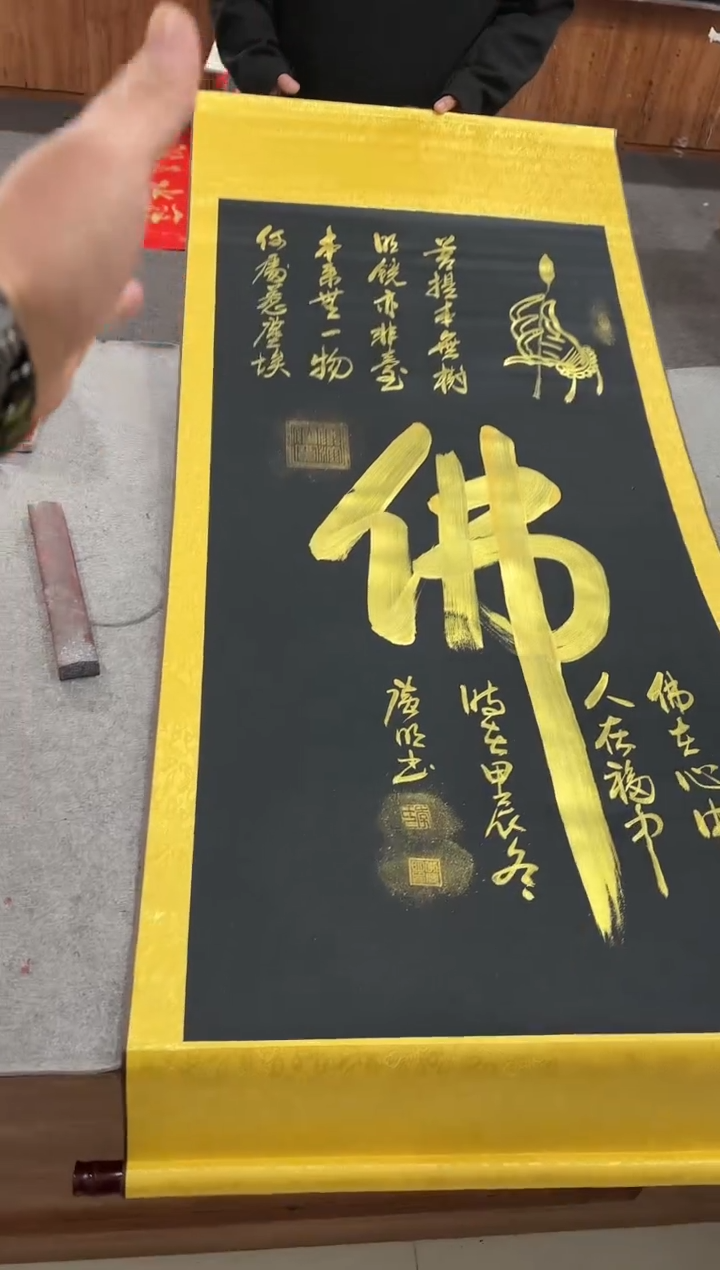 菩提本無樹
明鏡亦非臺
本來無一物
何處惹塵埃
佛
佛在心中
人在福中
時在甲辰冬